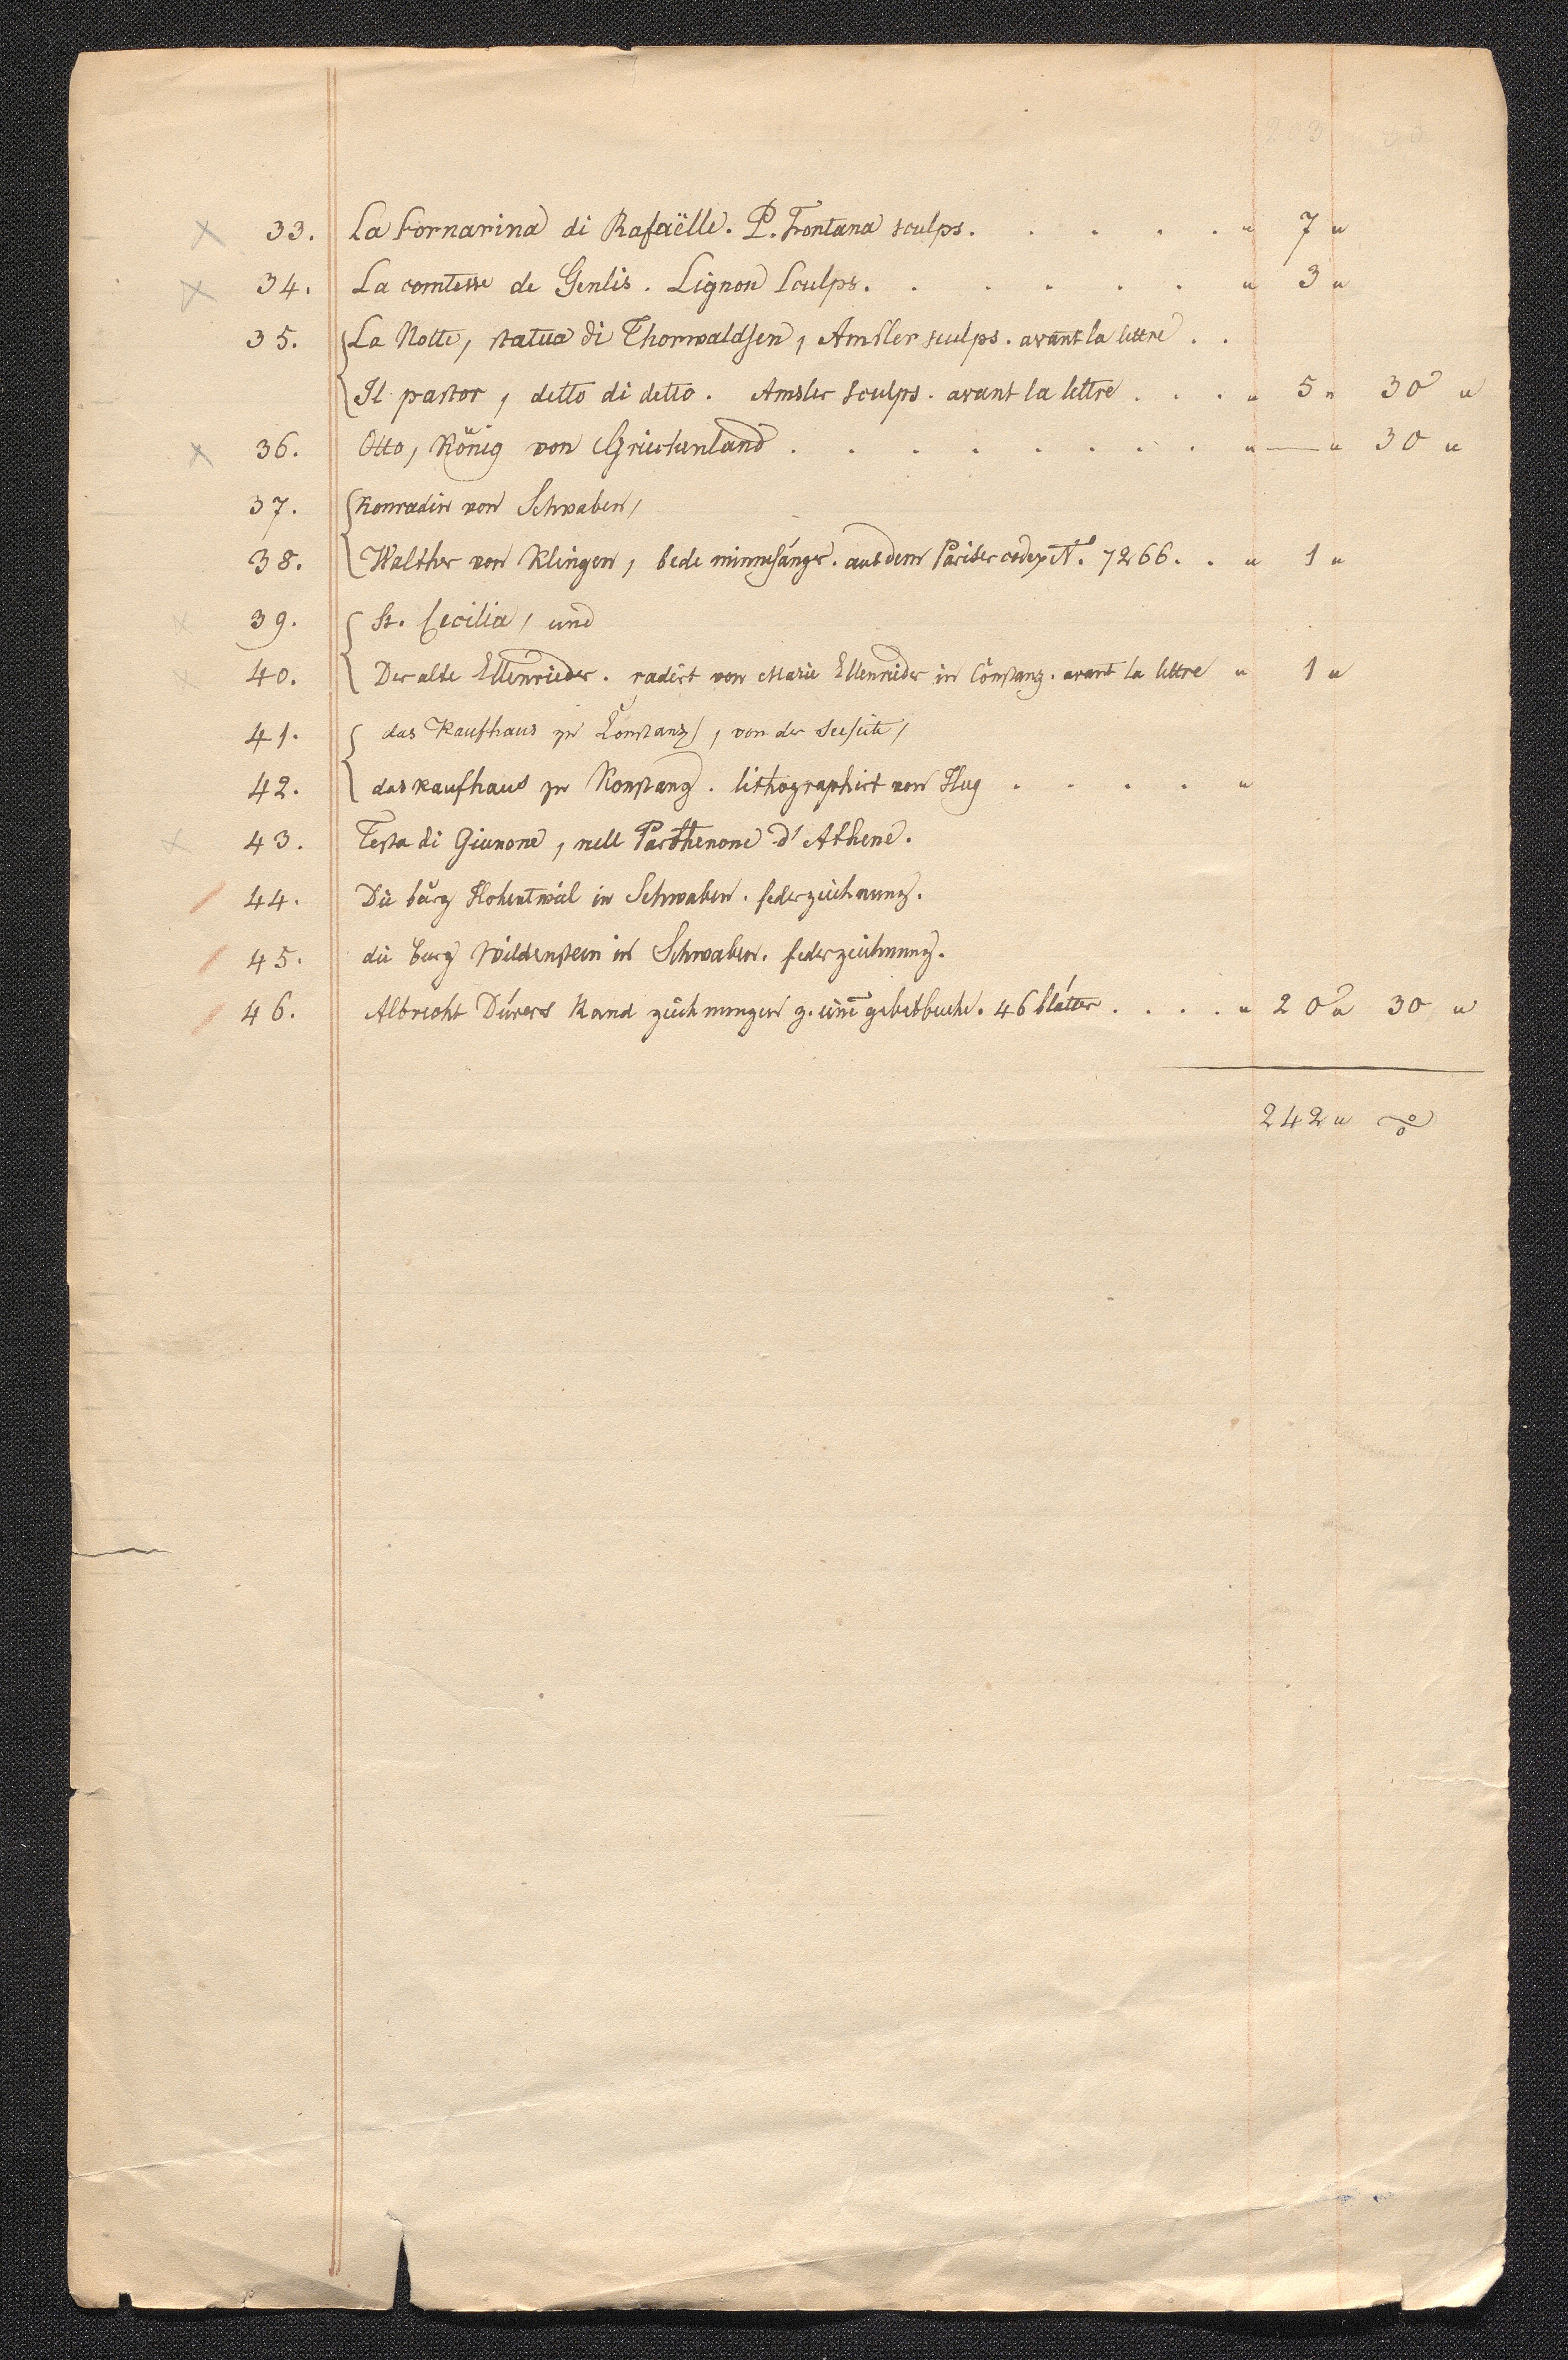 203 30
33. La Fornarina di Rafaëlle. P. Fontana sculps. . . . . . " 7 "
34. La comtesse de Genlis. Lignon Sculps. . . . . . . " 3 "
35. La Notte, statua di Thorwaldsen, Amsler sculps. avant la lettre . .
Il pastor, detto di detto. Amsler sculps. avant la lettre . . . " 5 " 30 "
36. Otto, König von Griechenland . . . . . . . . " — " 30 "
37. Konradin von Schwaben,
38. Walther von Klingen, bede minnesänger. aus dem Pariser codex N. 7266. . " 1 "
39. St. Cecilia, und
40. Der alte Ellenrieder. radirt von Marie Ellenrieder in Constanz. avant la lettre " 1 "
41. das Kaufhaus zu Constanz, von der Seeseite,
42. das kaufhaus zu Konstanz. lithographirt von Hug . . . . "
43. Testa di Giunone, nell Parthenone d'Athene.
44. Die bùrg Hohentwiel in Schwaben. federzeichnung.
45. die burg Wildenstein in Schwaben. federzeichnung.
46. Albrecht Dürers Rand zeichnungen z. eine gebetbuche. 46 blätter . . . . " 20 " 30 "
242 "